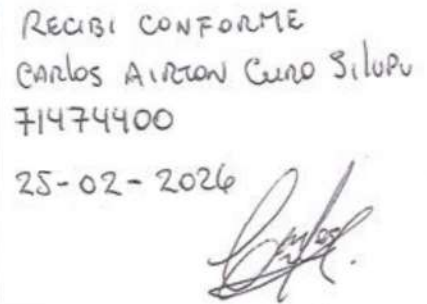 RECIBI CONFORME
CARlos AIRTON CURO SILUPU
71474400
25-02-2026